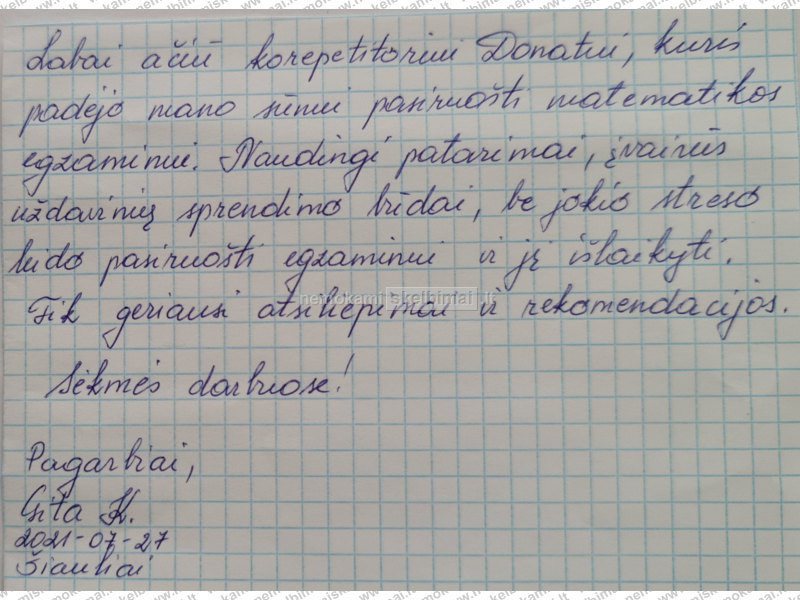 Labai ačiū korepetitoriui Donatui, kuris
padėjo mano sūnui pasiruošti matematikos
egzaminui. Naudingi patarimai, įvairūs
uždavinių sprendimo būdai, be jokio streso
leido pasiruošti egzaminui ir jį išlaikyti.
Tik geriausi atsiliepimai ir rekomendacijos.
nemokamiskelbimai.lt
Sėkmės darbuose!
Pagarbiai,
Gita K.
2021-07-27
Šiauliai